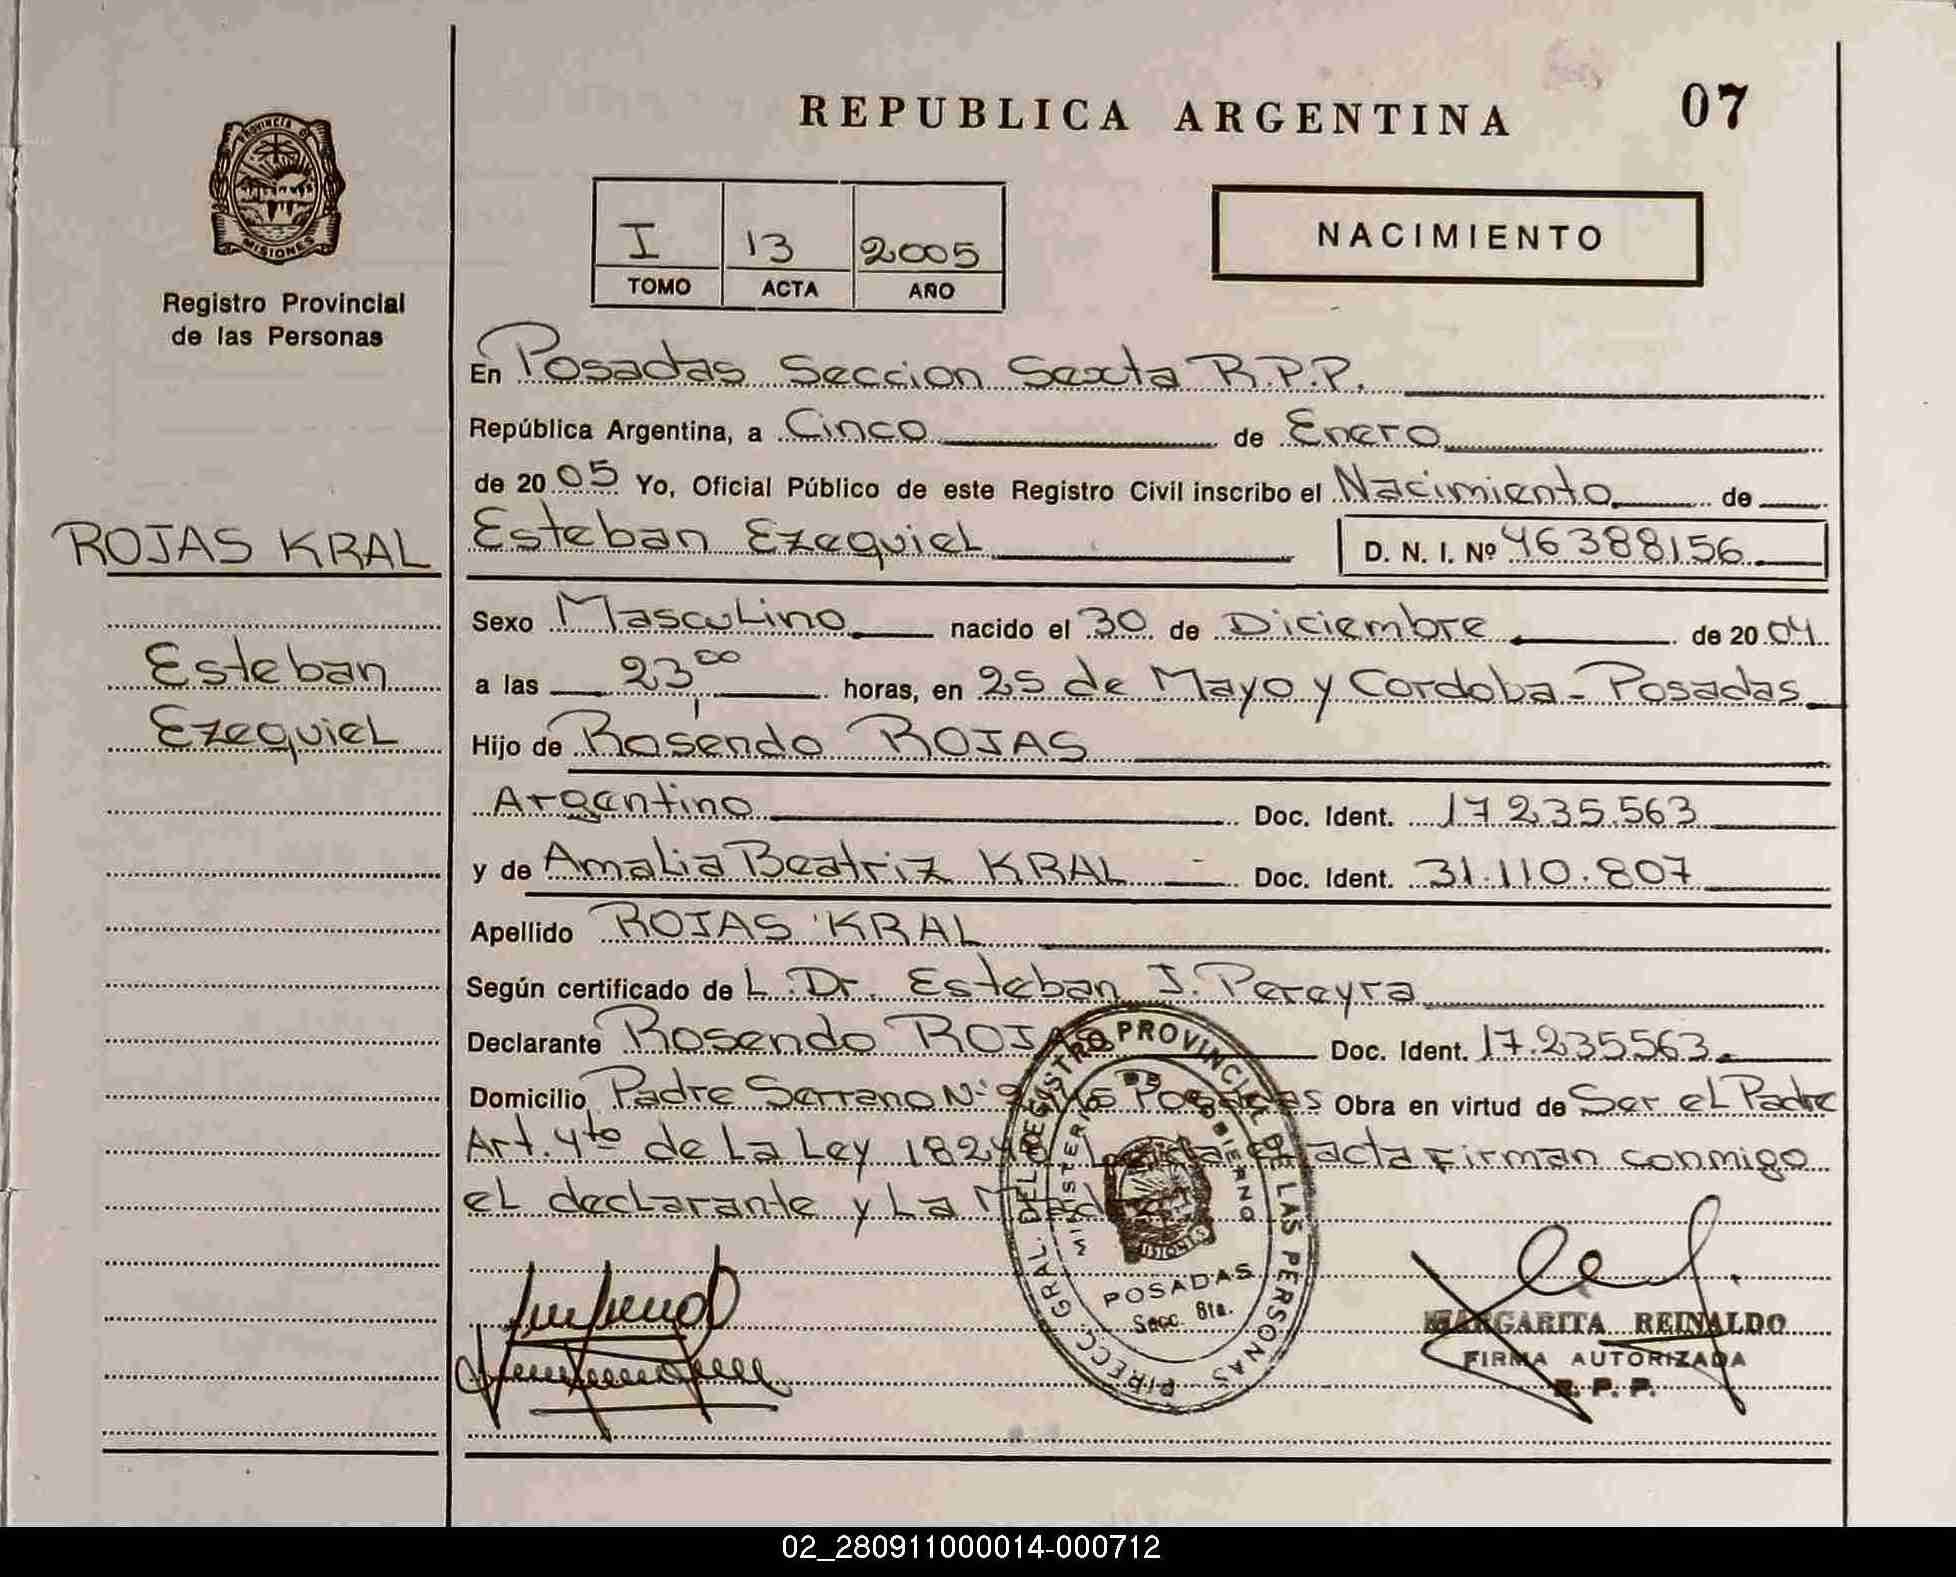 REPUBLICA ARGENTINA
07
PROVINCIA DE
MISIONES
Registro Provincial
de las Personas
I 13 2005
TOMO ACTA AÑO
NACIMIENTO
En Posadas Seccion Sexta R.P.P.
República Argentina, a Cinco de Enero
de 2005 Yo, Oficial Público de este Registro Civil inscribo el Nacimiento de
ROJAS KRAL
Esteban
Ezequiel
Esteban Ezequiel D. N. I. Nº 46388156
Sexo Masculino nacido el 30 de Diciembre de 2004
a las 23⁰⁰ horas, en 25 de Mayo y Cordoba - Posadas
Hijo de Rosendo ROJAS
Argentino Doc. Ident. 17235.563
y de Amalia Beatriz KRAL Doc. Ident. 31.110.807
Apellido ROJAS KRAL
Según certificado de L. Dr. Esteban J. Pereyra
Declarante Rosendo ROJAS Doc. Ident. 17.235563
Domicilio Padre Serrano Nº Posadas Obra en virtud de Ser el Padre
Art. 4to de La Ley 18248 Leida el acta firman conmigo
el declarante y La Madre
DIRECC. GRAL. DEL REGISTRO PROVINCIAL DE LAS PERSONAS
MINISTERIO DE GOBIERNO
MISIONES
POSADAS
Secc. 6ta.
MARGARITA REINALDO
FIRMA AUTORIZADA
R. P. P.
02_280911000014-000712